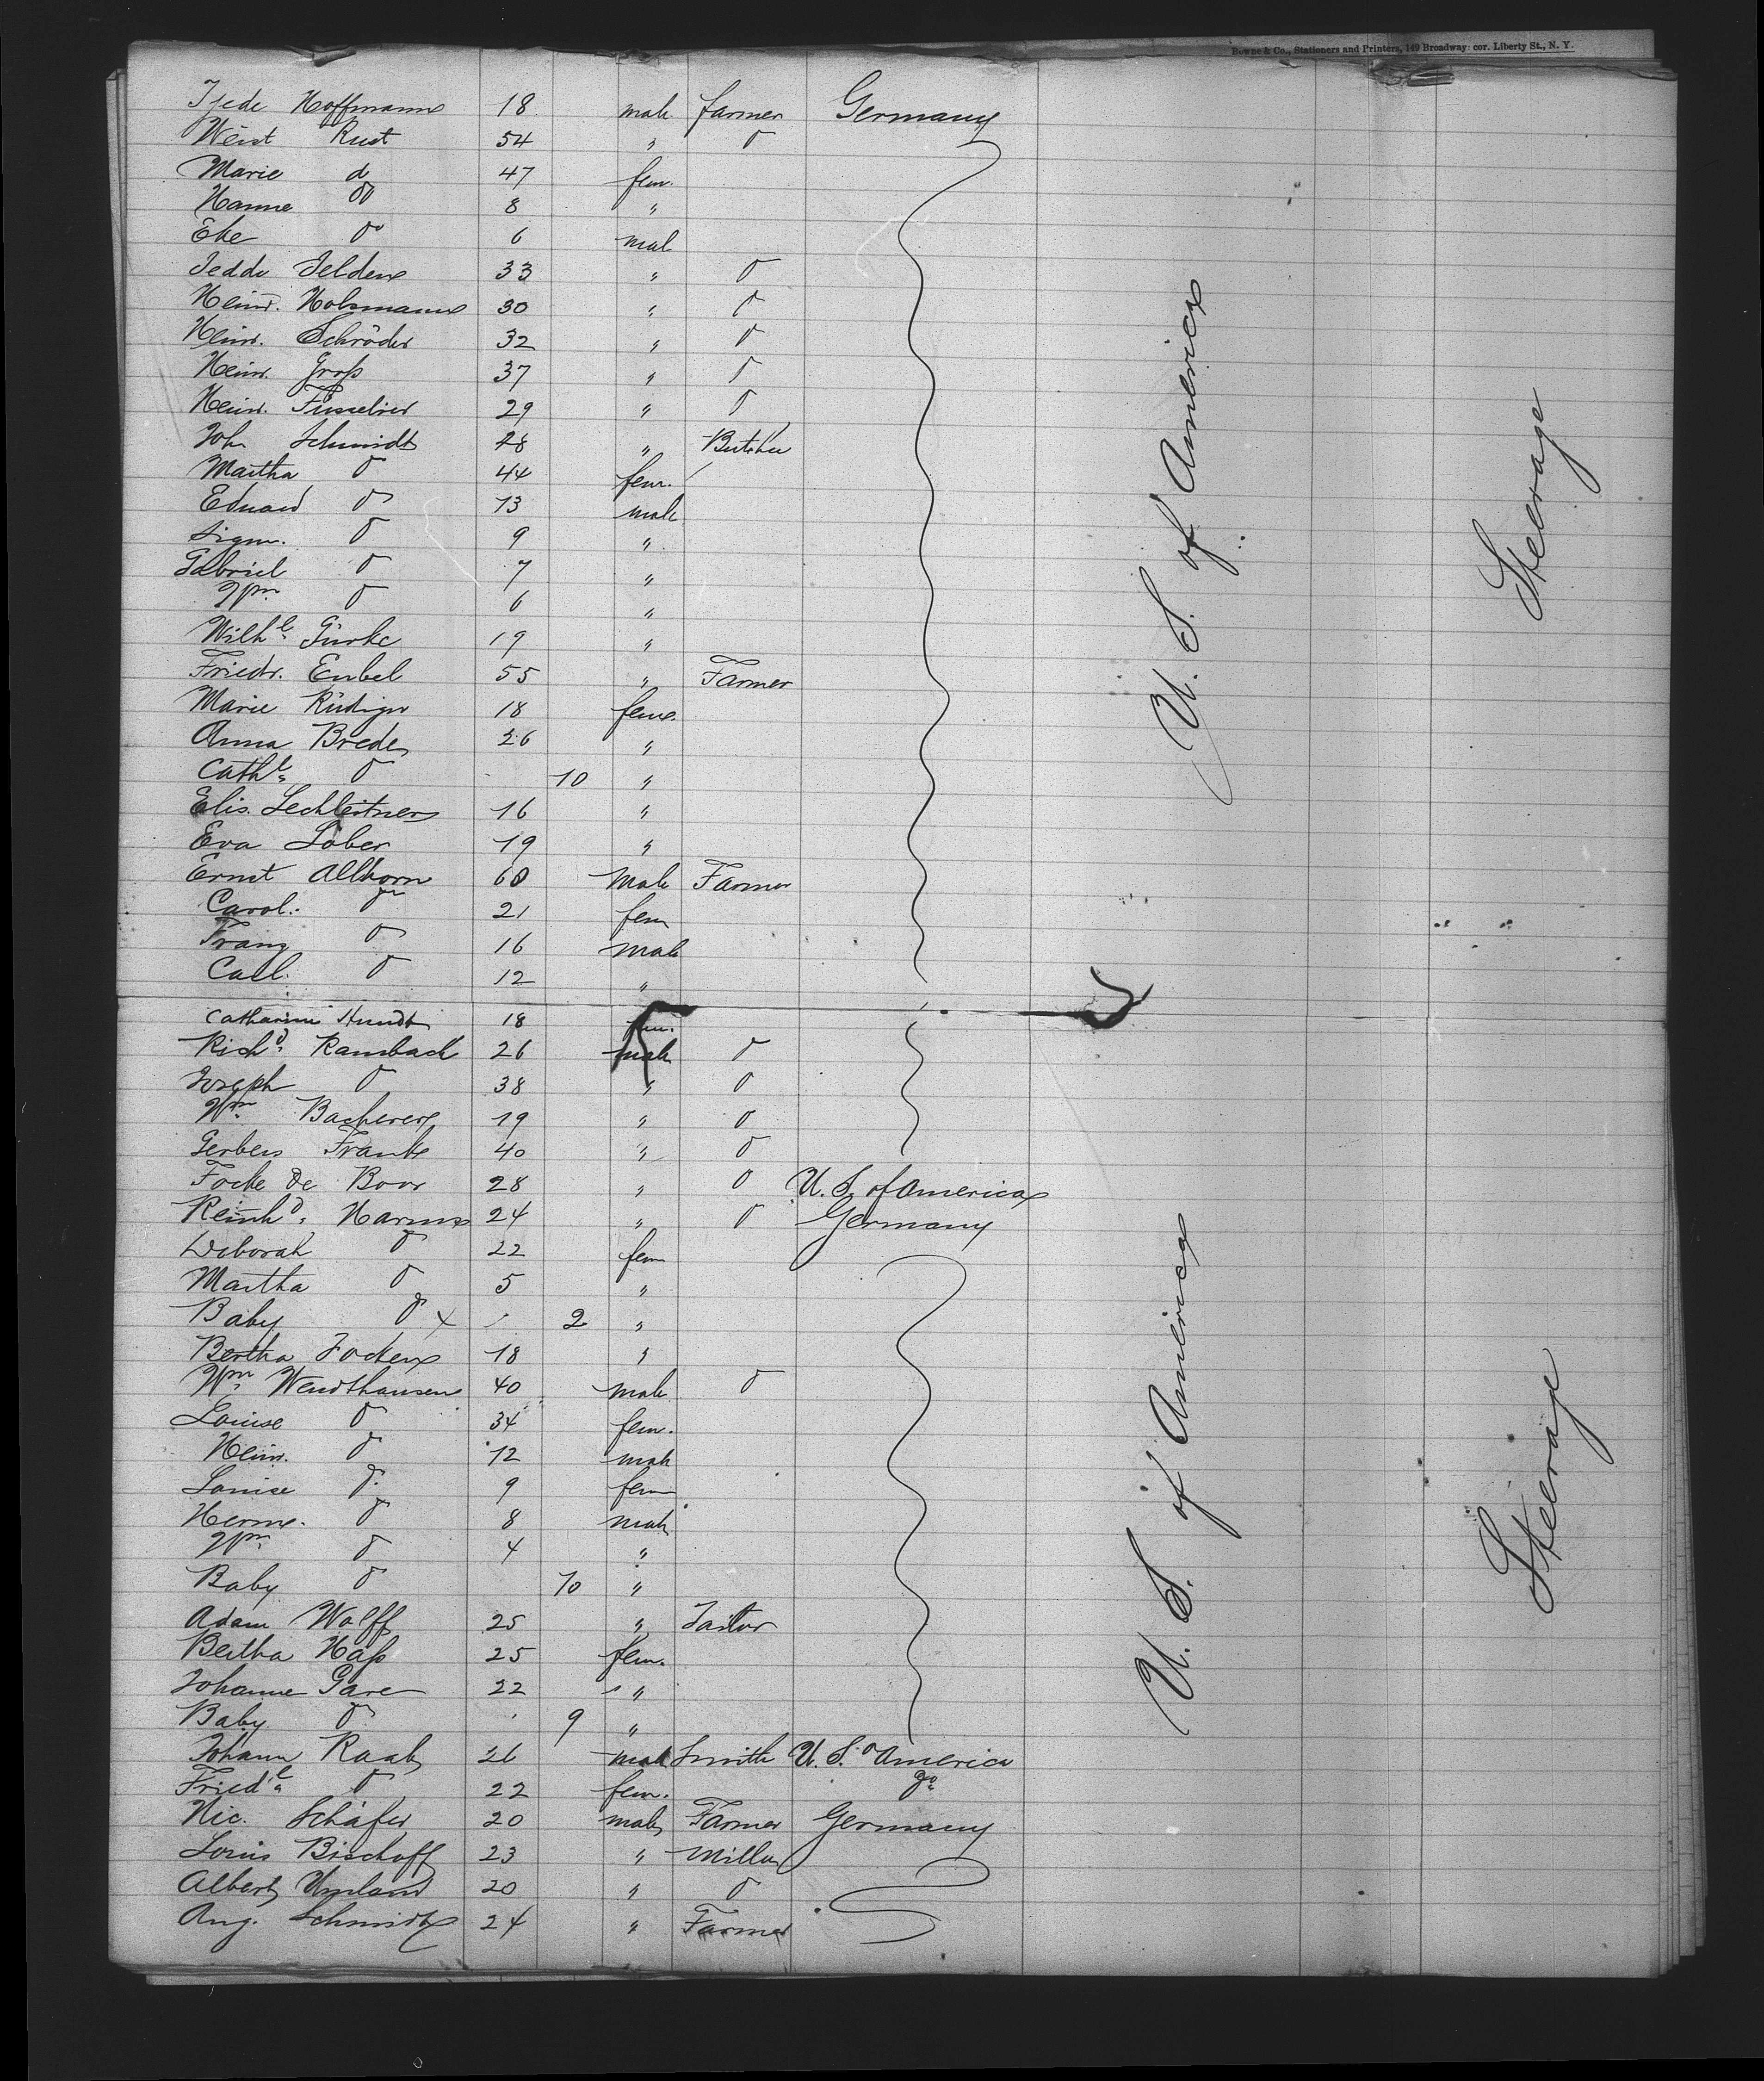 Bowne & Co., Stationers and Printers, 149 Broadway cor. Liberty St., N. Y.
Tjede Hoffmann 18 male farmer Germany
Weist Rust 54 " do
Marie do 47 fem.
Hanne do 8 "
Eke do 6 mal
Jedde Jelden 33 " do
Heinr. Holzmann 30 " do
Heinr. Schröder 32 " do
Heinr. Groß 37 " do
Heinr. Füsselier 29 " do
Joh Schmidt 48 " Butcher
Martha do 44 fem.
Eduard do 13 male
Sigm. do 9 "
Gabriel do 7 "
Wm do 6 "
Wilhe. Gürke 19 "
Friedr. Enbel 55 " Farmer
Marie Rüdiger 18 fem.
Anna Brede 26 "
Cathe. do 10 "
Elis. Lechleitner 16 "
Eva Lober 19 "
Ernst Allhorn 60 Male Farmer
Carol. do 21 fem
Franz do 16 male
Carl. do 12 "
Catharine Hundt 18 fem.
Richd. Rambach 26 male do
Joseph do 38 " do
Wm. Bacherer 19 " do
Gerbers Frank 40 " do
Focke De Boor 28 " do U. S. of America
Reinhd. Harms 24 " do Germany
Deborah do 22 fem
Martha do 5 "
Baby do x 2 "
Bertha Focken 18 "
Wm. Wendthausen 40 male do
Louise do 34 fem.
Heinr. do 12 male
Louise do. 9 fem
Herm. do 8 male
Wm. do 4 "
Baby do 10 "
Adam Wolff 25 " Tailor
Bertha Haß 25 fem.
Johanne Gare 22 "
Baby do 9 "
Johann Raab 26 male Smith U. S. o America
Friede. do 22 fem. do
Nic. Schäfer 20 male Farmer Germany
Louis Bischoff 23 " Miller
Albert Umland 20 " do
Aug. Schmidt 24 " Farmer
U. S. of America
Steerage
U. S. of America
Steerage